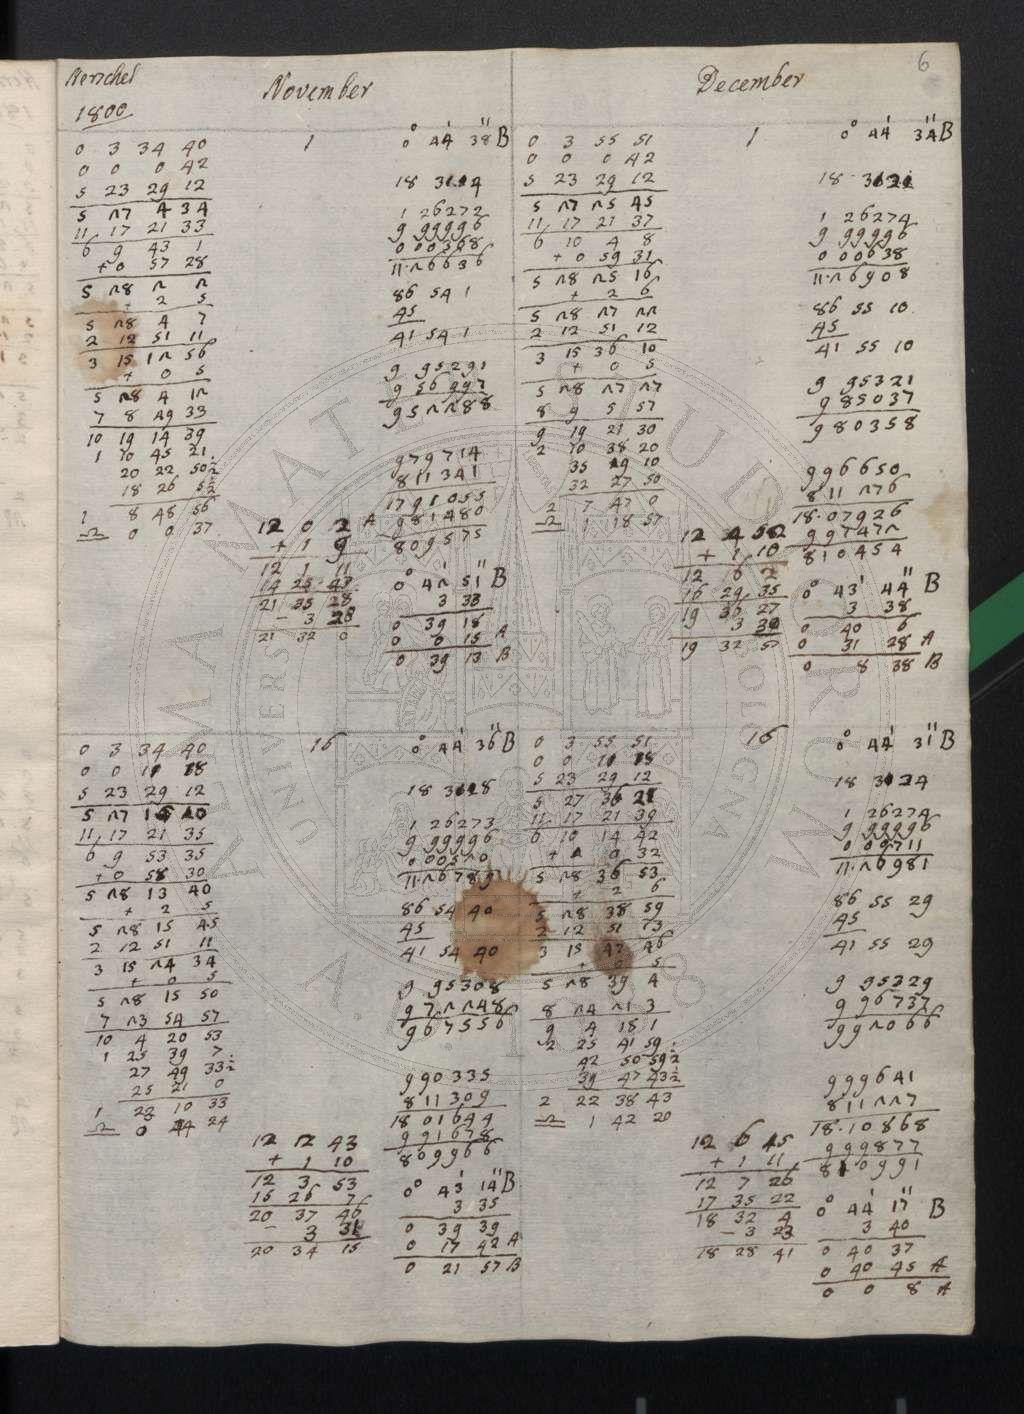 6
Herschel
1800
November
December
1
0 3 34 40
0 0 0 42
5 23 29 12
5 27 4 34
11 17 21 33
6 9 43 1
+0 57 28
5 28 2 2
+ 2 5
5 28 4 7
2 12 51 11
3 15 12 56
+ 0 5
5 28 4 12
7 8 49 33
10 19 14 39
1 10 45 21
20 22 50½
18 26 5½
1 8 48 56
♎ 0 0 37
12 0 2 A
+ 1 9
12 1 11
14 25 47
21 35 28
- 3 28
21 32 0
0° 44' 38'' B
1 26272
9 99996
0 00368
11.26636
86 54 1
45
41 54 1
9 95291
9 56997
952288
979714
811341
1791055
981480
809575
0° 42' 51'' B
3 33
0 39 18
0 0 15 A
0 39 13 B
1
0 3 55 51
0 0 0 42
5 23 29 12
5 27 25 45
11 17 21 37
6 10 4 8
+ 0 59 31
5 28 25 16
+ 2 6
5 28 27 22
2 12 51 12
3 15 36 10
+ 0 5
5 28 27 27
8 9 5 57
9 19 21 30
2 10 38 20
35 19 10
32 27 50
2 7 47 0
♎ 1 18 57
12 4 52
+ 1 10
12 6 2
16 29 35
19 36 27
3 30
19 32 57
0° 44' 34'' B
1 26274
9 99996
0 00638
11.26908
86 55 10
45
41 55 10
9 95321
9 85037
980358
996650
811276
18.07926
997472
810454
0° 43' 44'' B
3 38
0 40 6
0 31 28 A
0 8 38 B
16
0 3 34 40
0 0 11 18
5 23 29 12
5 27 15 10
11 17 21 35
6 9 53 35
+0 58 30
5 28 13 40
+ 2 5
5 28 15 45
2 12 51 11
3 15 24 34
+ 0 5
5 28 15 50
7 23 54 57
10 4 20 53
1 25 39 7
27 49 33½
25 21 0
1 23 10 33
♎ 0 44 24
12 2 43
+ 1 10
12 3 53
16 26 7
20 37 46
- 3 31
20 34 15
0° 44' 36'' B
1 26273
9 99996
0 00520
11.26789
86 54 40
45
41 54 40
9 95308
9 72248
967556
990335
811309
1801644
991678
809966
0° 43' 14'' B
3 35
0 39 39
0 17 42 A
0 21 57 B
16
0 3 55 51
0 0 11 18
5 23 29 12
5 27 36 21
11 17 21 39
6 10 14 42
+ 1 0 32
5 28 36 53
+ 2 6
5 28 38 59
2 12 51 13
3 15 47 46
+ 0 5
5 28 39 4
8 24 21 3
9 4 18 1
2 25 41 59
42 50 59½
39 47 43½
2 22 38 43
♎ 1 42 20
12 6 15
+ 1 11
12 7 26
17 35 22
18 32 4
- 3 23
18 28 41
0° 44' 31'' B
18 3124
1 26274
9 99996
0 00711
11.26981
86 55 29
45
41 55 29
9 95329
9 96737
992066
999641
811227
18.10868
999877
810991
0° 44' 17'' B
3 40
0 40 37
0 40 45 A
0 0 8 A
ALMA MATER STUDIORUM